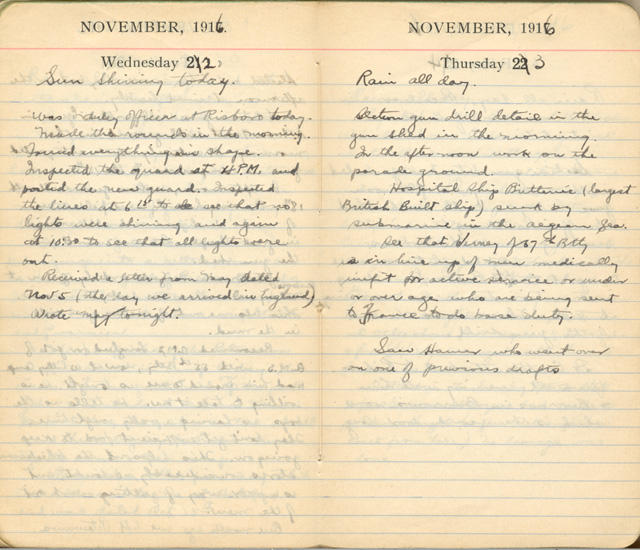 NOVEMBER, 1916.
Wednesday 22
Sun Shining today.
Was Orderly Officer at Risboro today.
Made the rounds in the morning.
Found everything in shape.
Inspected the guard at 4 P.M. and
posted the new guard. Inspected
the lines at 6 to see that no
lights were shining and again
at 10:30 to see that all lights were
out.
Received a letter from May dated
Nov 5 (the day we arrived in England)
Wrote May tonight.
NOVEMBER, 1916
Thursday 23
Rain all day.
Section gun drill detail in the
gun shed in the morning.
In the afternoon work on the
parade ground.
Hospital Ship Brittanic (largest
British Built ship) sunk by
submarine in the Aegean Sea.
See that of 67th Bty
is in line up of men medically
unfit for active service or under
or over age who are being sent
to France to do base duty.
Saw who went over
on one of previous drafts